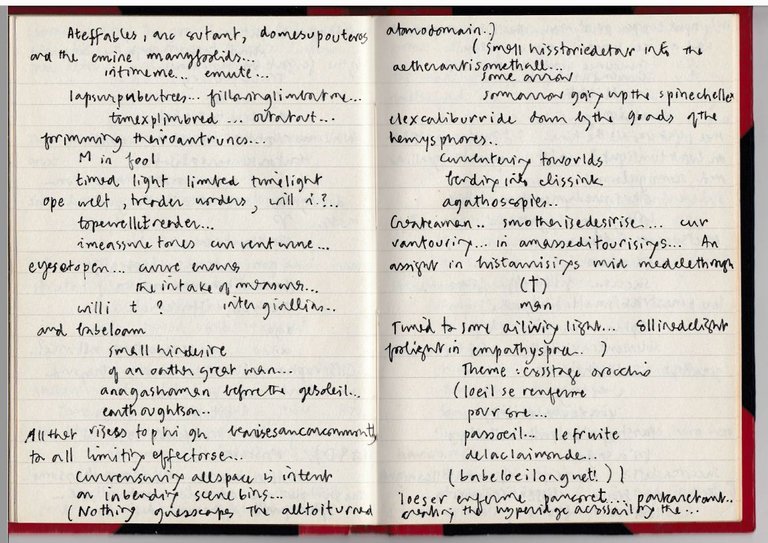 Ateffables, are sutant, domesupouteros
and the emine manyfoolids...
intimeme... emute...
lapsurpubertrees... fillowinglimbatme...
tomexplimbred ... outatout...
forimming theiroantruncs...
M in fool
timed light limbed timelight
ope welt, treader worders, will i?..
topewelltreader...
imeassure tones current urne...
eyesetopen... curve enows
the intake of measures...
will i t ? inter giallias..
and babeloam
small hindesire
of an oathr great man...
anagashaman before the gesoleil...
earthoughtson..
All that risess tophi gh
to all limiting effectorse...
currensuring allspace is intent
on inbending scene bins...
(Nothing guesscapes The alltoiturned
atamodomain.)
(small hisstoriedetair into the
aetherantisomethall...
some arrow
somarrow going up the spinechelles
elexcaliburride down by the goads of the
hemysphores..
curventering toworlds
bording into elissink
agathoscopies..
Createamen.. smotherisedesirise... cur
vantouring... in amasseditourisings... An
assight in histamisings mid medelethrough
(†)
man
Tuned to some ailiving light... ellinedelight
prolight in empathyspree.. )
Theme : crosstage orocchio
(loeil se renferme
pour ore...
passoeil.. lefruite
delaclaimonde...
(babeloeilongnet!) )
loeser enferme pancoret... parkaretant..
creating the hyperidge acrosssailing the...